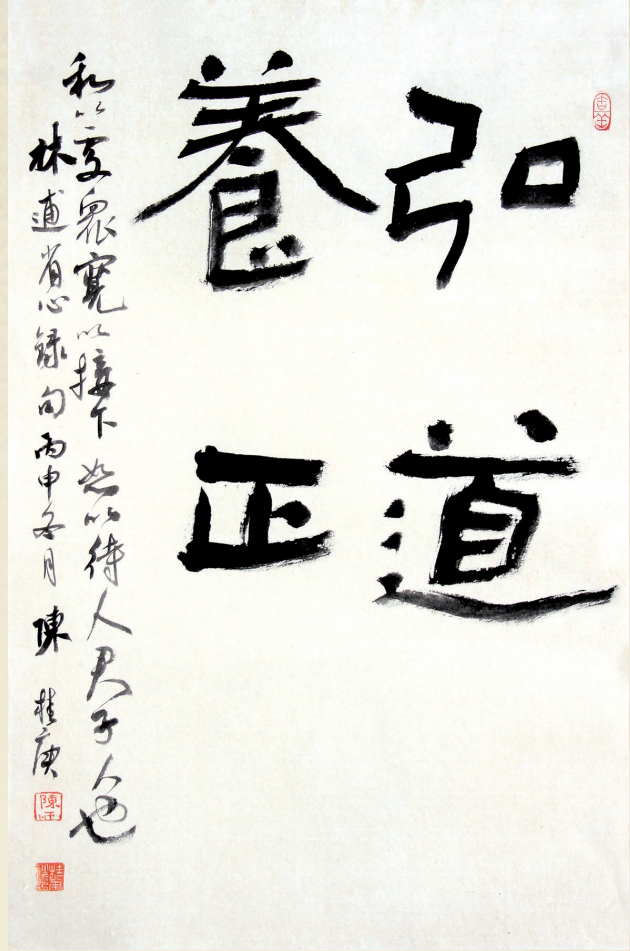 弘道
養正
和以處衆寬以接下恕以待人君子人也
林逋省心錄句丙申冬月 陳桂庚